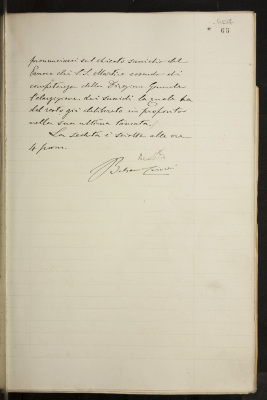 63
pronunciarsi sul chiesto sussidio del
Comm dei S.S. Martiri essendo di
competenza della Direzione Generale
l'elargizione dei sussidi la quale ha
del resto già deliberato in proposito
nella sua ultima tornata.
La seduta è sciolta alle ore
4 pom.